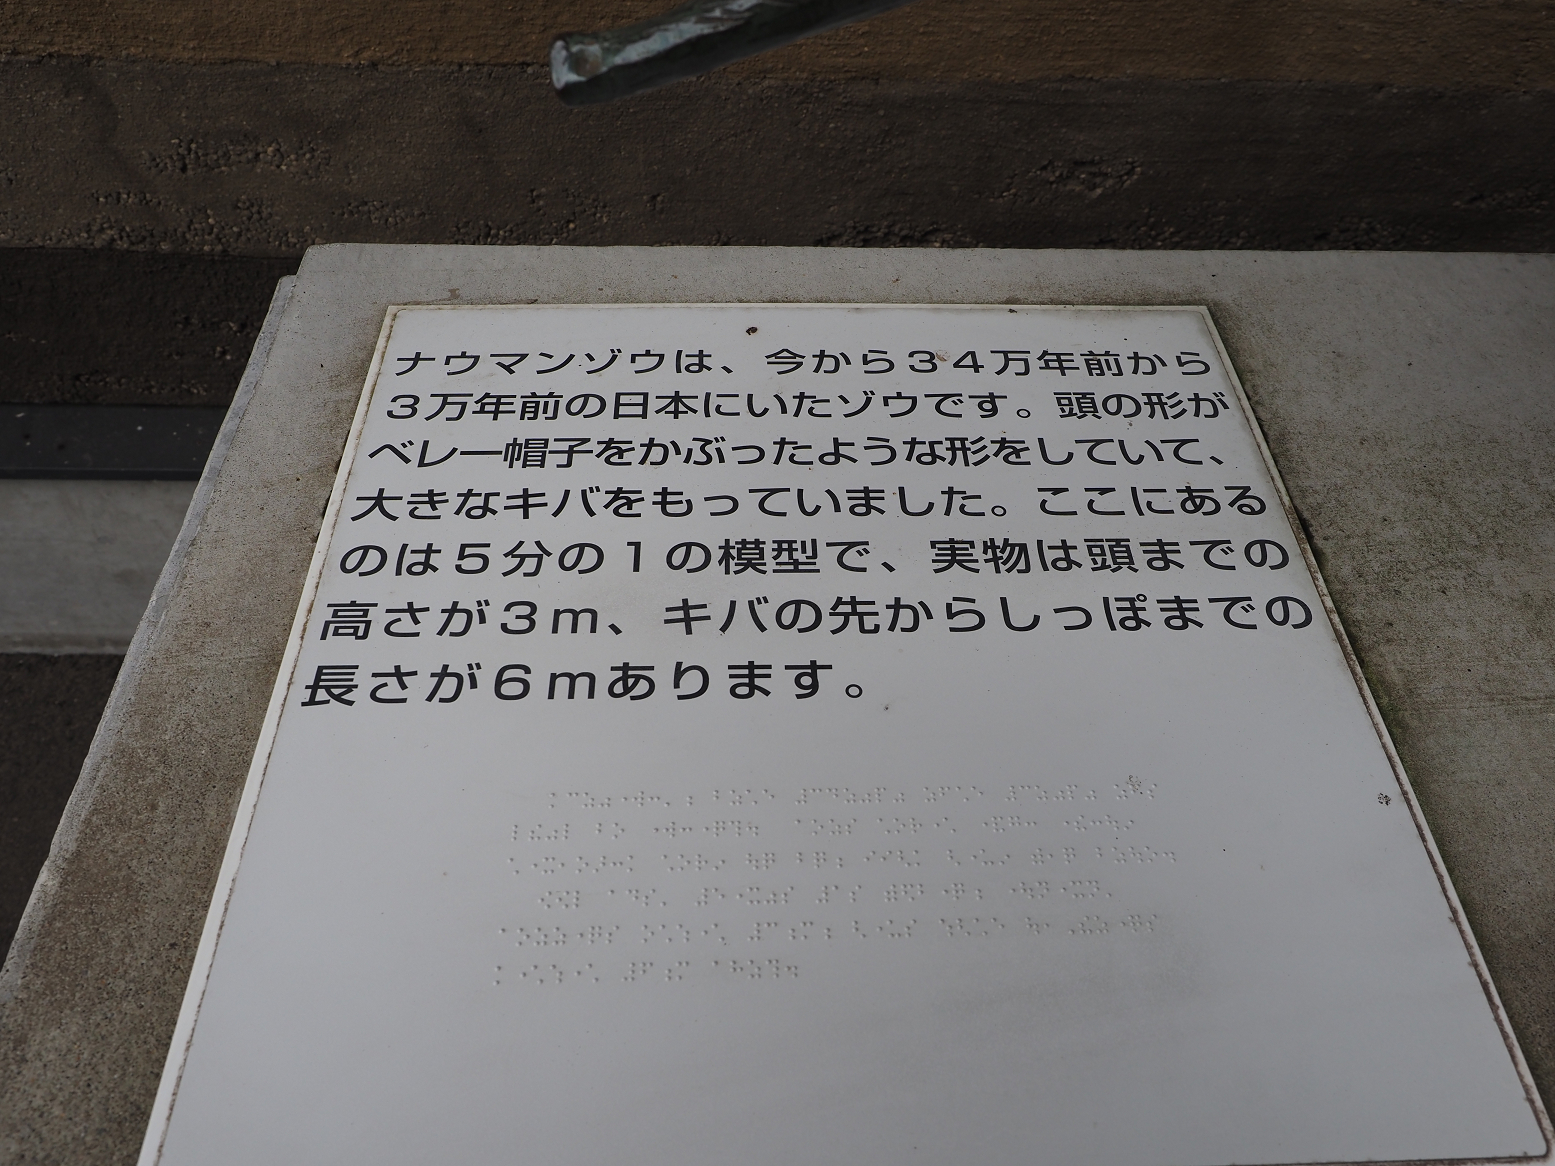 ナウマンゾウは、今から３４万年前から
３万年前の日本にいたゾウです。頭の形が
ベレー帽子をかぶったような形をしていて、
大きなキバをもっていました。ここにある
のは５分の１の模型で、実物は頭までの
高さが３ｍ、キバの先からしっぽまでの
長さが６ｍあります。